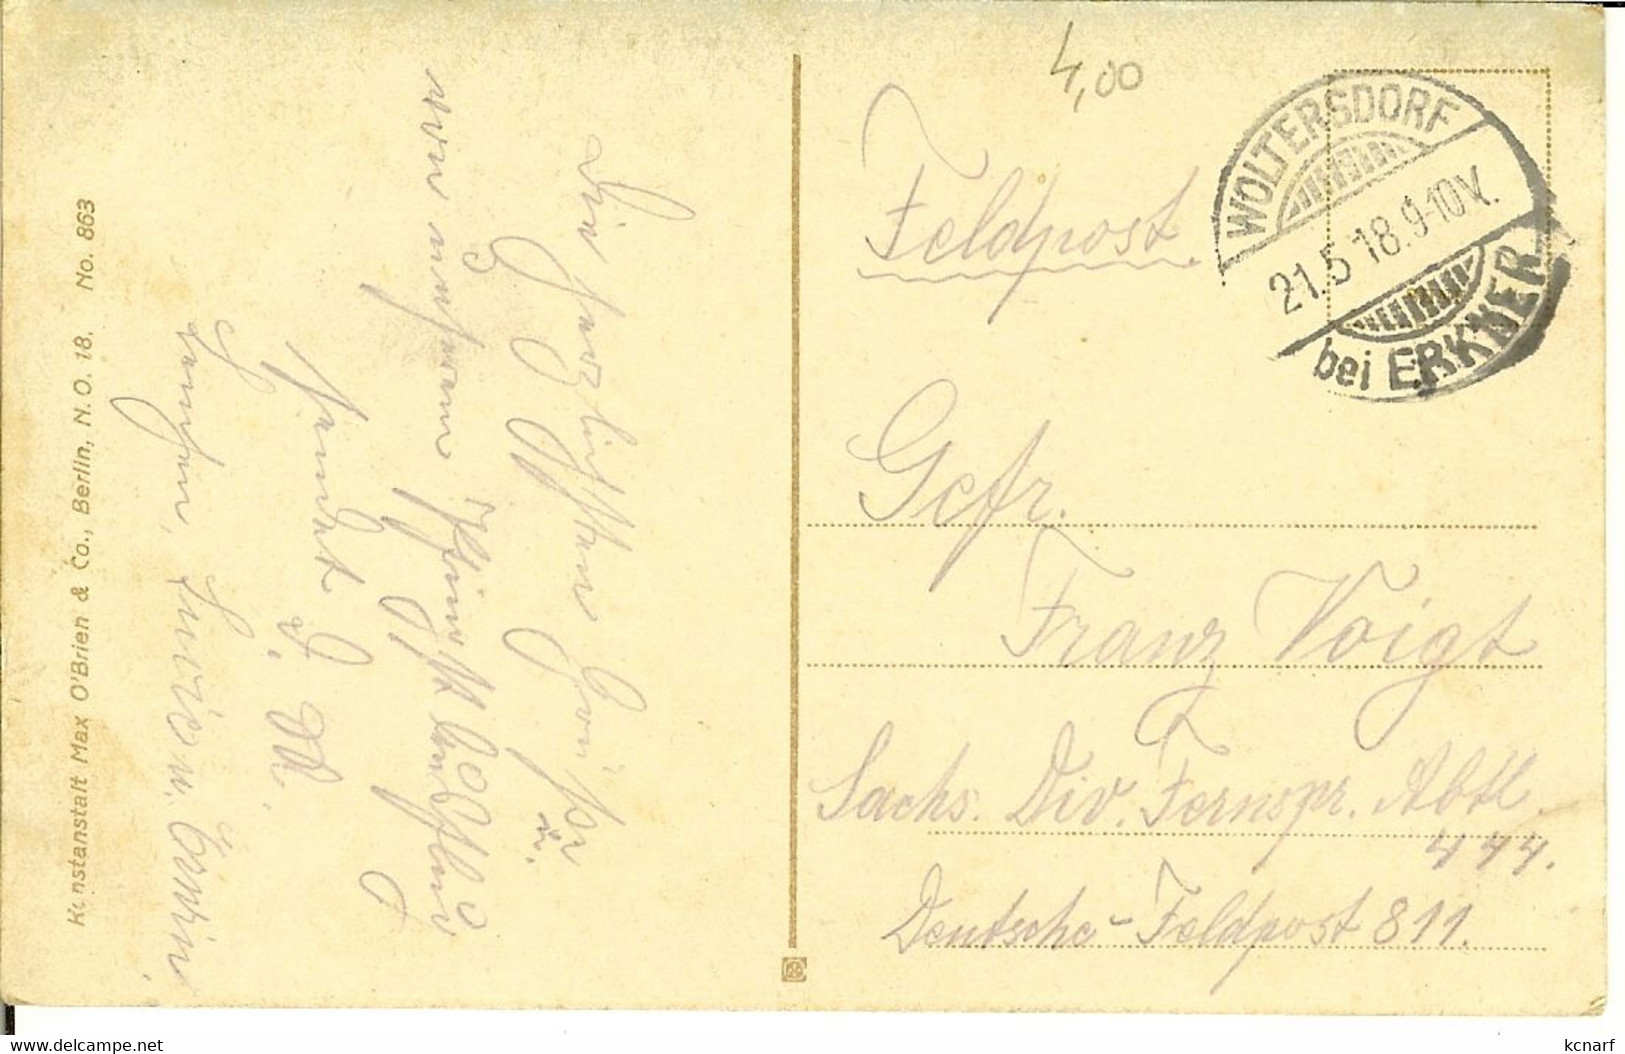 4,00
WOLTERSDORF
21.5.18.9-10V.
bei ERKNER
Feldpost.
Gefr.
Franz Voigt
Sächs. Div. Fernspr. Abtl.
444.
Deutsche-Feldpost 811.
Die herzlichsten Grüße
von unserem Pfingstausflug
sendet D. M.
Kunstanstalt Max O'Brien & Co., Berlin, N.O. 18. No. 863
delcampe.net
kcnarf